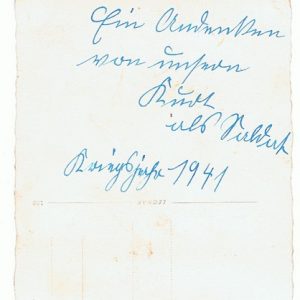 Ein Andenken
von unsern
Kurt
als Soldat
Kriegsjahr 1941